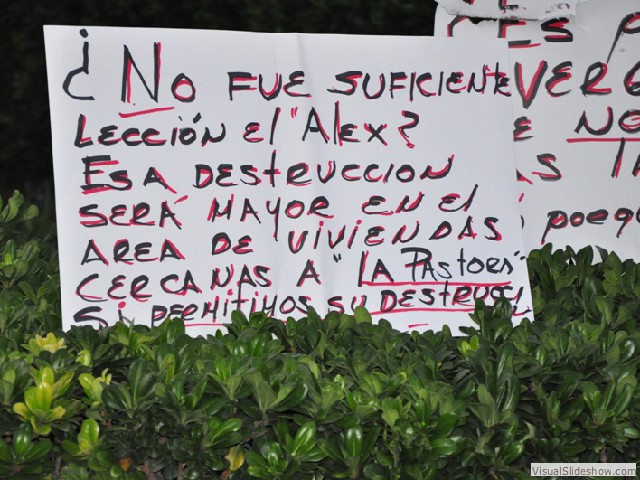 ¿No FUE SUFICIENTE
LECCIÓN El "Alex?
ESA DESTRUCCION
SERÁ MAYOR EN El
AREA DE VIVIENDAS
CERCANAS A "LA PASTORA"
SI PERMITIMOS SU
¿ES
VER
NO
VisualSlideshow.com